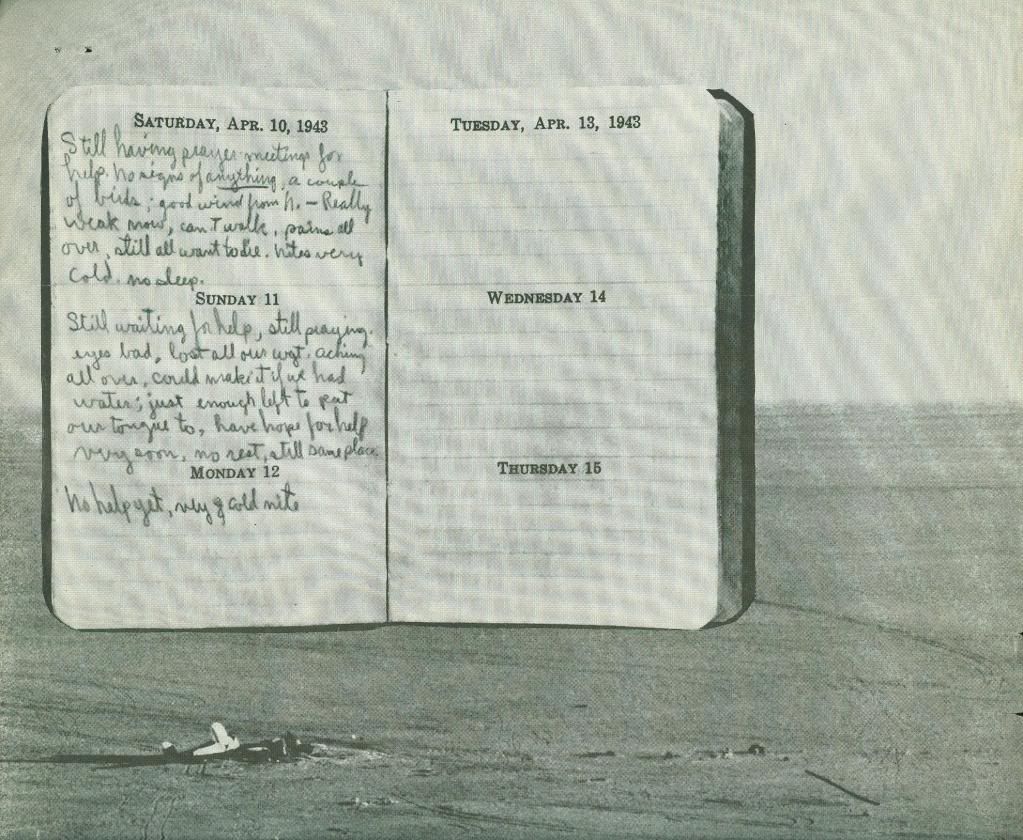 SATURDAY, APR. 10, 1943
Still having prayer meetings for
help. No signs of anything, a couple
of birds; good wind from N. – Really
weak now, can't walk, pains all
over, still all want to die. Nites very
cold. no sleep.
SUNDAY 11
Still waiting for help, still praying.
eyes bad, lost all our wgt. aching
all over, could make it if we had
water; just enough left to put
our tongue to, have hope for help
very soon, no rest, still same place.
MONDAY 12
No help yet, very cold nite
TUESDAY, APR. 13, 1943
WEDNESDAY 14
THURSDAY 15